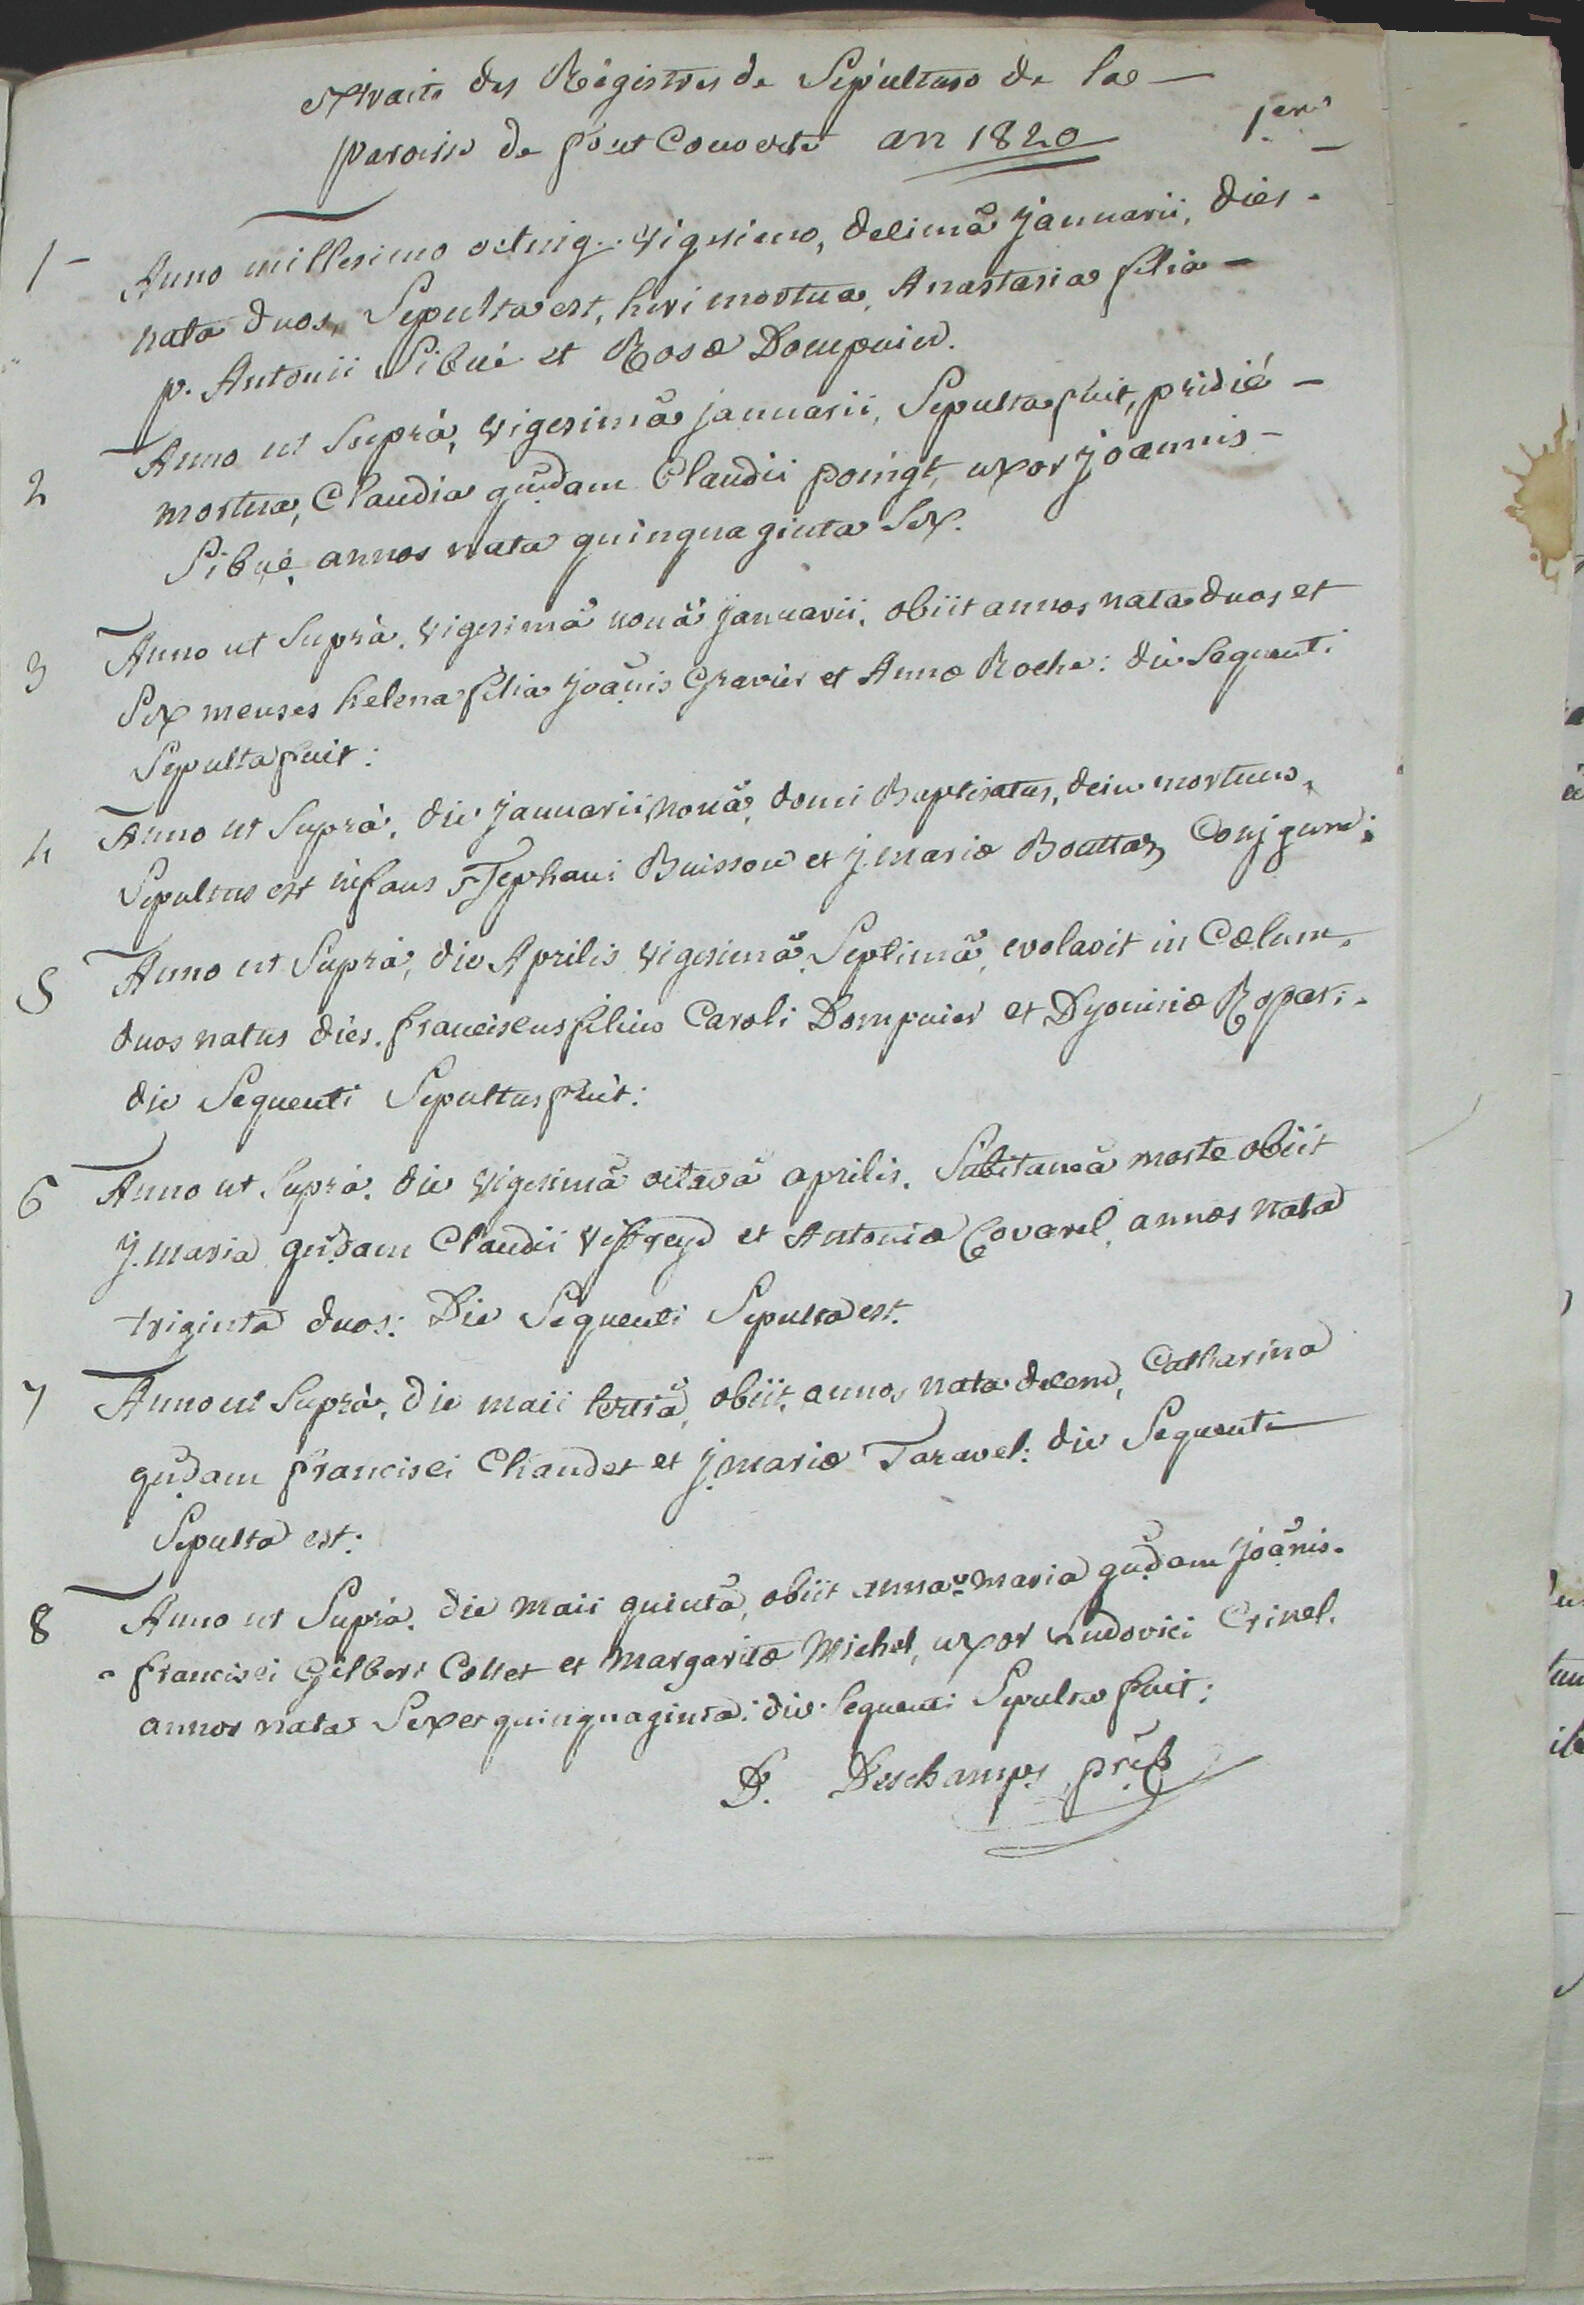 extraits des Régistres de Sépulture de la
paroisse de fontCouverte an 1820 1er
1 Anno millesimo octing. vigesimo, decimâ januarii, dies
nata duos, Sepulta est, heri mortua, Anastasia filia
p. Antonii Sibué et Rosæ Dompnier.
2 Anno ut Suprà, vigesimâ januarii, Sepulta fuit, pridiè
mortua, Claudia qudam Claudii poingt, uxor joannis
Sibué, annos nata quinquaginta Sex.
3 Anno ut Suprà, vigesimâ nonâ januarii, obiit annos nata duos et
Sex menses helena filia joanis Gravier et Annæ Roche: die Sequenti
Sepulta fuit:
4 Anno ut Suprà, die januarii nonâ, domi Baptisatus, dein mortuus,
Sepultus est infans Stephani Buisson et j. mariæ Bouttaz Conjgum:
5 Anno ut Suprà, die Aprilis vigesimâ Septimâ, evolavit in Cælum,
duos natus dies, franciscus filius Caroli Dompnier et Dyonisiæ Ropari.
die Sequenti Sepultus fuit:
6 Anno ut Suprà, die vigesimâ octavâ aprilis, Subitaneâ morte obiit
j. maria qudam Claudii Viffreyd et Antoniæ Covarel, annos nata
triginta duos: Die Sequenti Sepulta est.
7 Anno ut Suprà, die maii tertiâ, obiit, annos nata decem, Catharina
qudam francisci Chaudet et j. mariæ Taravel: die Sequenti
Sepulta est:
8 Anno ut Suprà, die maii quintâ, obiit anna-maria qudam joanis
francisci Gilbert Collet et margaritæ Michel, uxor Ludovici Crinel.
annos nata Sex et quinquaginta: die Sequenti Sepulta fuit:
D. Deschamps